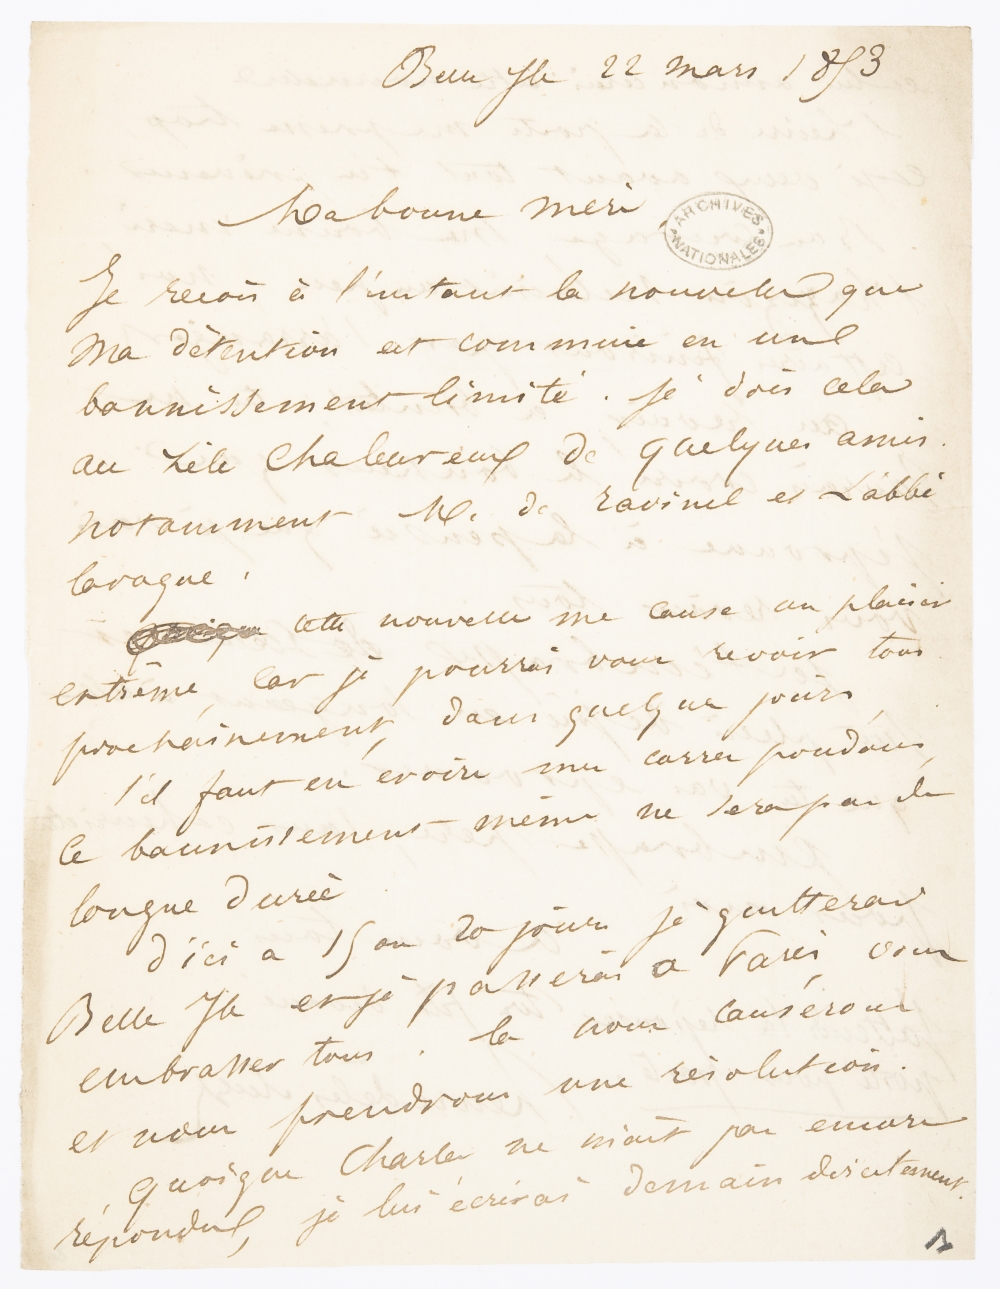 Belle Ile 22 mars 1853
Ma bonne mère
ARCHIVES NATIONALES
Je reçois à l'instant la nouvelle que
Ma détention est commuée en un
bannissement limité. je dois cela
au zèle chaleureux de quelques amis.
notamment M. de ravinel et L'abbé
laroque.
cette nouvelle me cause un plaisir
extrême, car je pourrai vous revoir tous
prochainement, dans quelques jours,
s'il faut en croire mes correspondans,
Ce bannissement même ne sera pas de
longue durée
d'ici a 15 ou 20 jours je quitterai
Belle Ile et je passerai a Paris, vous
embrasser tous. la nous causerons
et nous prendrons une résolution.
quoique Charles ne m'ait pas encore
répondu, je lui écrirai demain directement.